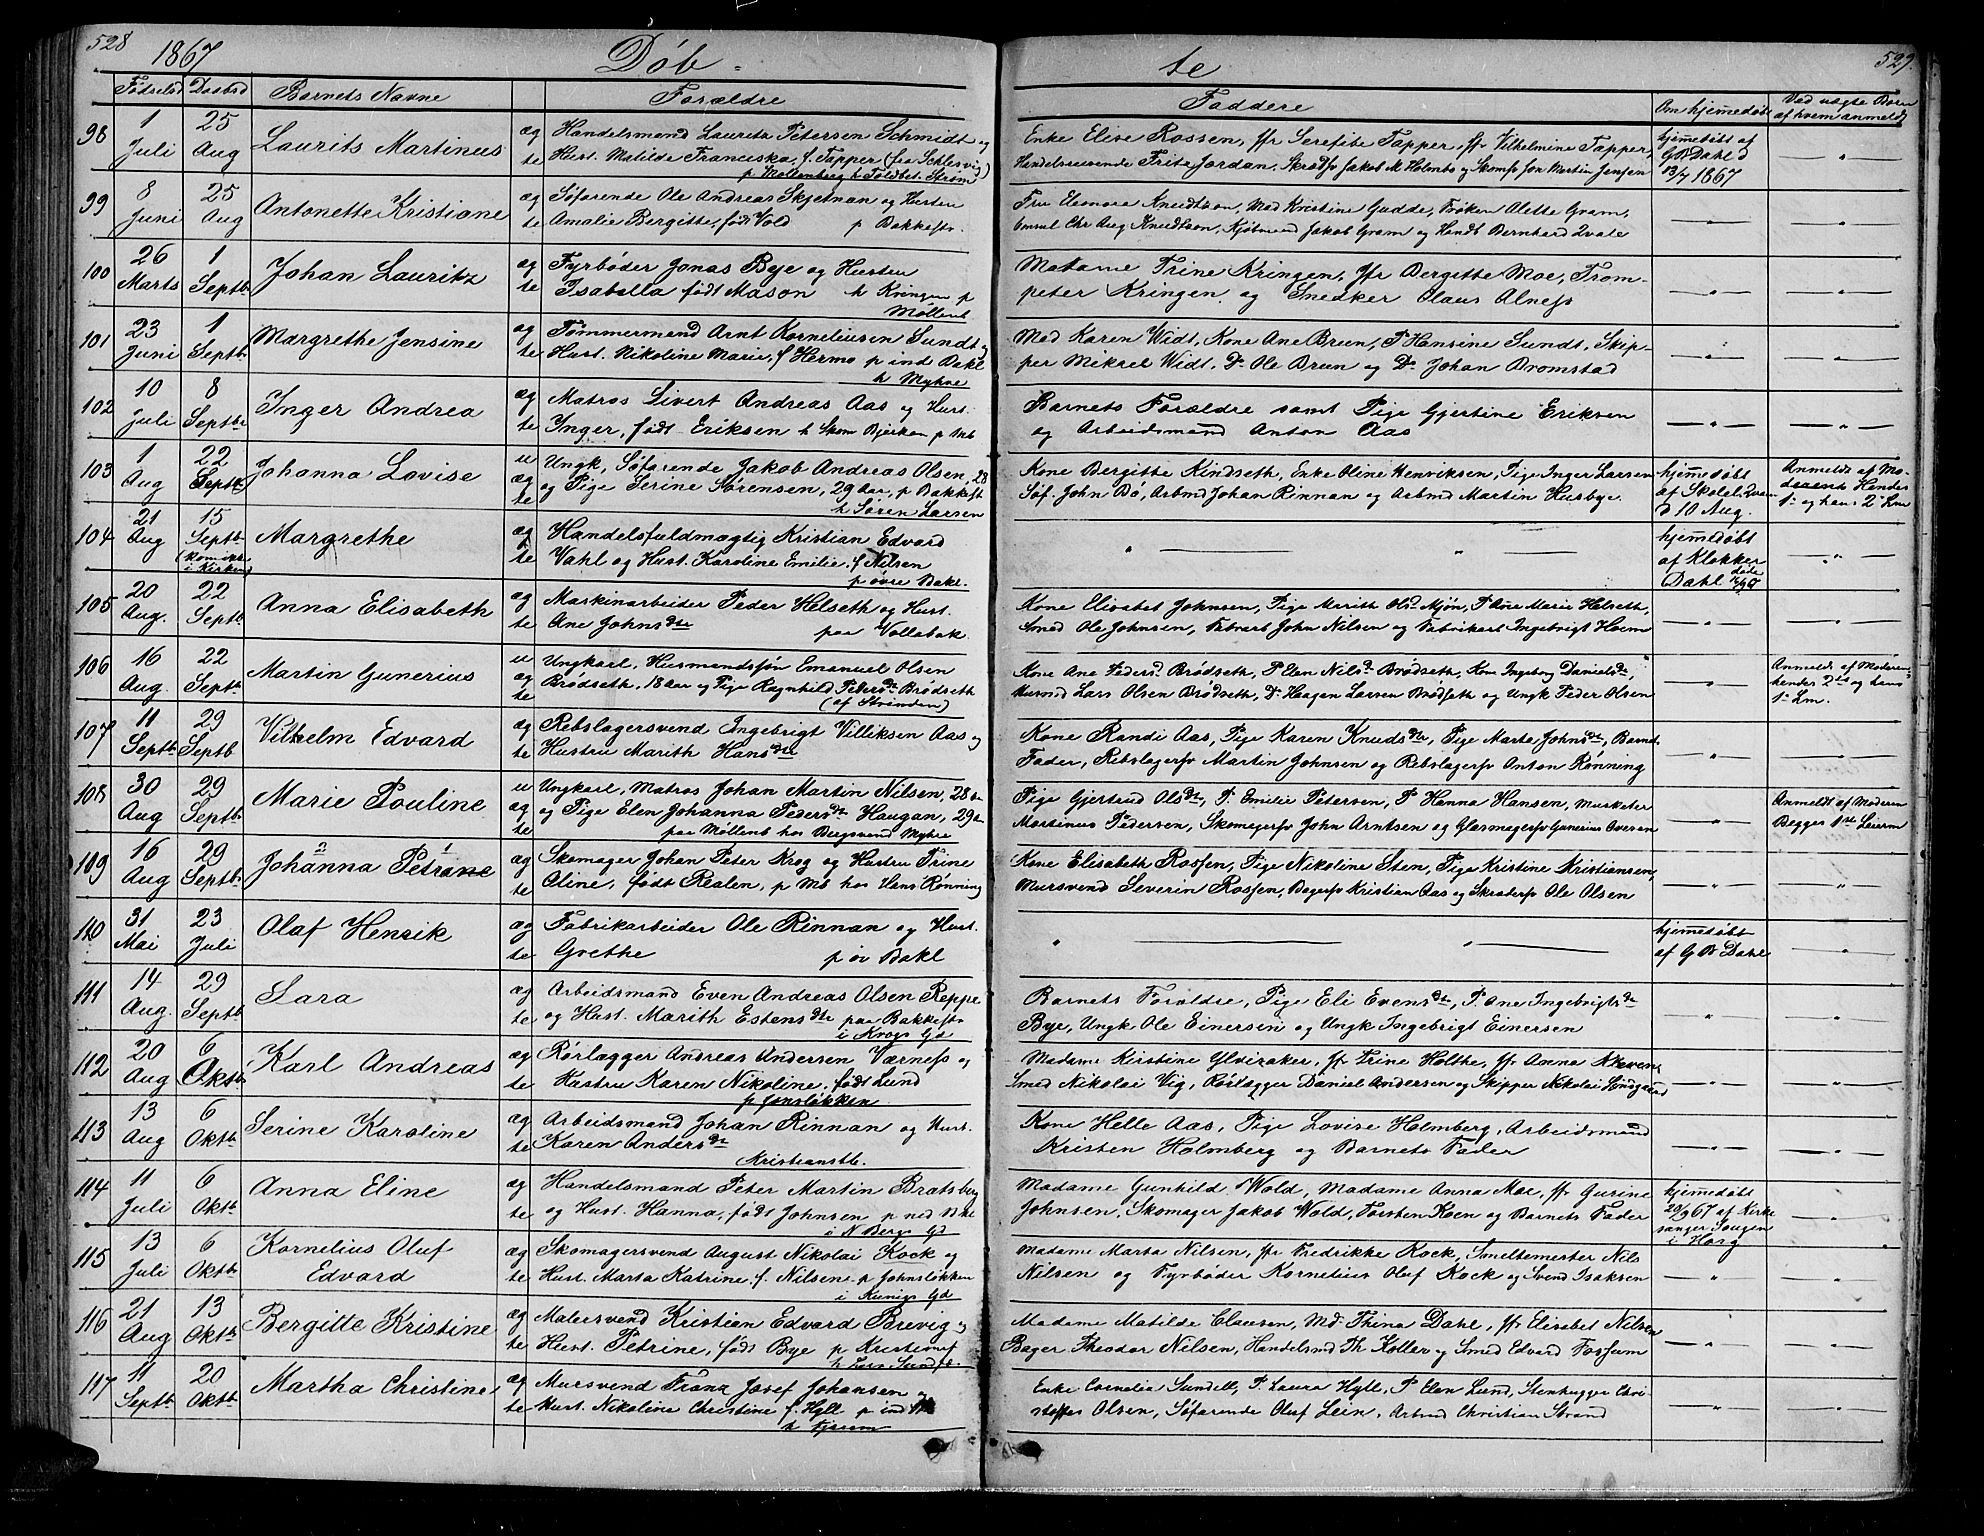 528
1867
Döb-
te
529.
Födselsd Daabsd Barnets Navne Forældre Faddere Om hjemmedöbt Ved uægte Börn af hvem anmeldt
98 1 Juli 25 Aug Laurits Martinus ægte Handelsmand Lauritz Petersen Schmidt og
Hust. Matilde Franciska, f. Tapper (fra Schlesvig)
p Möllenberg h Toldbet. Ström
Enke Elise Rossen, jfr Serefite Tapper, jfr Vilhelmine Tapper,
Handelsreisende Fritz Jordan, Skrædsv Jakob M Holmbo og Skomsv Jon Martin Jensen
hjemedöbt af
G B Dahl d
13/7 1867 "
99 8 Juni 25 Aug Antonette Kristiane ægte Söfarende Ole Andreas Skjetnan og Hustru
Amalie Bergitte, födt Vold p Bakkestr.
Fru Eleonora Knudtzon, Mad Kristine Gudde, Fröken Alette Gram,
Consul Chr Aug Knudtzon, Kjöbmand Jakob Gram og Handb Bernhard Qvale
" "
100 26 Marts 1 Septb Johan Lauritz ægte Fyrböder Jonas Bye og Hustru
Isabella födt Mason h Kringen p
Möllenb
Madame Trine Kringen, jfr Bergitte Moe, Trom-
peter Kringen og Snedker Olaus Alness
" "
101 23 Juni 1 Septb Margrethe Jensine ægte Tömmermand Arnt Korneliusen Sundt og
Hust. Nikoline Marie, f Hermo p ind Bakl
h Myhre
Mad Karen Widt, Kone Ane Brun, P Hansine Sundt, Skip-
per Mikael Widt, Do Ole Brun og Do Johan Bromstad
" "
102 10 Juli 8 Septbr Inger Andrea ægte Matros Sivert Andreas Aas og Hust.
Inger, födt Eriksen h Skom Bjerken p Mb
Barnets Forældre samt Pige Gjertine Eriksen
og Arbeidsmand Anton Aas
" "
103 1 Aug 22 Septb Johanna Lovise uægte Ungk, Söfarende Jakob Andreas Olsen, 28
og Pige Serine Sörensen, 29 Aar, p Bakkest
h Sören Larsen
Kone Bergitte Kindseth, Enke Oline Henriksen, Pige Inger Larsen
Söf. John Bö, Arbmd Johan Rinnan og Arbmd Martin Husbye.
hjemedöbt
af Skolel. Qvam
d 10 Aug.
Anmeldt af Mo-
deren Hendes
1ste og hans 2det Lm
104 21 Aug 15 Septb (kom ikke i Kirken) Margrethe ægte Handelsfuldmægtig Kristian Edvard
Vahl og Hust. Karoline Emilie f Nilsen
p övre Bakl.
" "
hjemedöbt
af Klokker
Dahl "
105 20 Aug. 22 Septb Anna Elisabeth ægte Maskinarbeider Peder Helseth og Hust.
Ane Johnsdtr paa Vollabak
Kone Elisabet Johnsen, Pige Marith Olsd Mjön, P Ane Marie Helseth,
Smed Ole Johnsen, Fabrarb John Nilsen og Fabrikarb Ingebrigt Hoem
" "
106 16 Aug. 22 Septb Martin Gunerius uægte Ungkarl, Husmandssön Emanuel Olsen
Brödseth, 18 Aar og Pige Ragnhild Pedersdr Brödseth
(af Strinden)
Kone Ane Pedersd Brödseth, P Elen Nilsdr Brödseth, Kone Ingeborg Danielsdr,
Husmd Lars Olsen Brödseth, Do Haagen Larsen Brödseth og Ungk Peder Olsen
"
Anmeldt af Moderen,
hendes 2det og hans
1ste Lm.
107 11 Septb 29 Septb Vilhelm Edvard ægte Rebslagersvend Ingebrigt Villiksen Aas og
Hustru Marith Hansdtr
Kone Randi Aas, Pige Karen Knudsdtr, Pige Marta Johnsdr, Barnets
Fader, Rebslagersv Martin Johnsen og Rebslagersv Anton Rönning
" "
108 30 Aug 29 Septb Marie Pouline uægte Ungkarl, Matros Johan Martin Nilsen, 28 Aar
og Pige Elen Johanna Pedersdr Haugan, 29 Aar
paa Möllenb hos Bergsvend Myhre
Pige Gjertrud Olsdr, P. Emilie Petersen, P Hanna Hansen, Musketer
Martinus Pedersen, Skomagersv John Arntsen og Glasmagersv Gunerius Overan
"
Anmeldt af Moderen
Begges 1ste Leierm
109 16 Aug 29 Septb Johanna Petrine ægte Skomager Johan Peter Krog og Hustru Trine
Eline, födt Realen, p Mb hos Hans Rönning
Kone Elisabeth Rossen, Pige Nikoline Sten, Pige Kristine Kristiansen,
Mursvend Severin Rossen, Bagersv Kristian Aas og Skrædersv Ole Olsen
" "
110 31 Mai 23 Juli Olaf Henrik ægte Fabrikarbeider Ole Rinnan og Hust.
Grethe p öv Bakl
" "
hjemedöbt
af G B Dahl "
111 14 Aug. 29 Septb Sara ægte Arbeidsmand Even Andreas Olsen Reppe
og Hust. Marith Estensdtr paa Bakkestr
i Krogs Gd
Barnets Forældre, Pige Eli Evensdtr, P. Ane Ingebrigtsdr
Bye, Ungk Ole Einersen og Ungk Ingebrigt Einersen
" "
112 20 Aug 6 Oktb Karl Andreas ægte Rörlægger Andreas Andersen Værness og
Hustru Karen Nikoline, födt Lund
p Jonslökken
Madame Kirstine Ylvisaker, jfr Trine Holthe, jfr Anna Kleven
Smed Nikolai Vig, Rörlægger Daniel Andersen og Skipper Nikolai Lundgaard
" "
113 13 Aug 6 Oktb Serine Karoline ægte Arbeidsmand Johan Rinnan og Hust.
Karen Andersdr
Kristianstb.
Kone Helle Aas, Pige Lovise Holmberg, Arbeidsmand
Kristen Holmberg og Barnets Fader
" "
114 11 Juli 6 Oktb Anna Eline ægte Handelsmand Peter Martin Bratsberg
og Hust. Hanna, födt Johnsen p ned Bakl
i N Bergs Gd
Madame Gunhild Wold, Madame Anna Moe, jfr Gurine
Johnsen, Skomager Jakob Wold, Torsten Koen og Barnets Fader
hjemedöbt
20/9 67 af Kirke
sanger Sougen
i Horg "
115 13 Juli 6 Oktb Kornelius Oluf
Edvard ægte Skomagersvend August Nikolai Kock og
Hust. Marta Katrine f. Nilsen p Johnslökken
i Kunigs Gd
Madame Marta Nilsen, jfr Fredrikke Kock, Smeltemester Nils
Nilsen og Fyrböder Kornelius Oluf Kock og Svend Isaksen
" "
116 21 Aug 13 Oktb Bergitte Kristine ægte Malersvend Kristian Edvard Brevig og
Hust. Petrine, födt Bye p Kristiansf
h Lars Sundse.
Madame Matilde Clausen, Md. Thina Dahl, jfr Elisabet Nilsen
Bager Theodor Nilsen, Handelsmd Th Koller og Smed Edvard Fossum
" "
117 11 Septb 20 Oktb Martha Christine ægte Mursvend Franz Josef Johansen og
Hust. Nikoline Christine f. Hyll p ind Bk
h Fjesem
Enke Cornelia Sundell, P. Laura Hyll, P Elen Lund, Stenhugger Chri-
stoffer Olsen, Söfarende Oluf Lein, Arbmd Christian Strand
" "